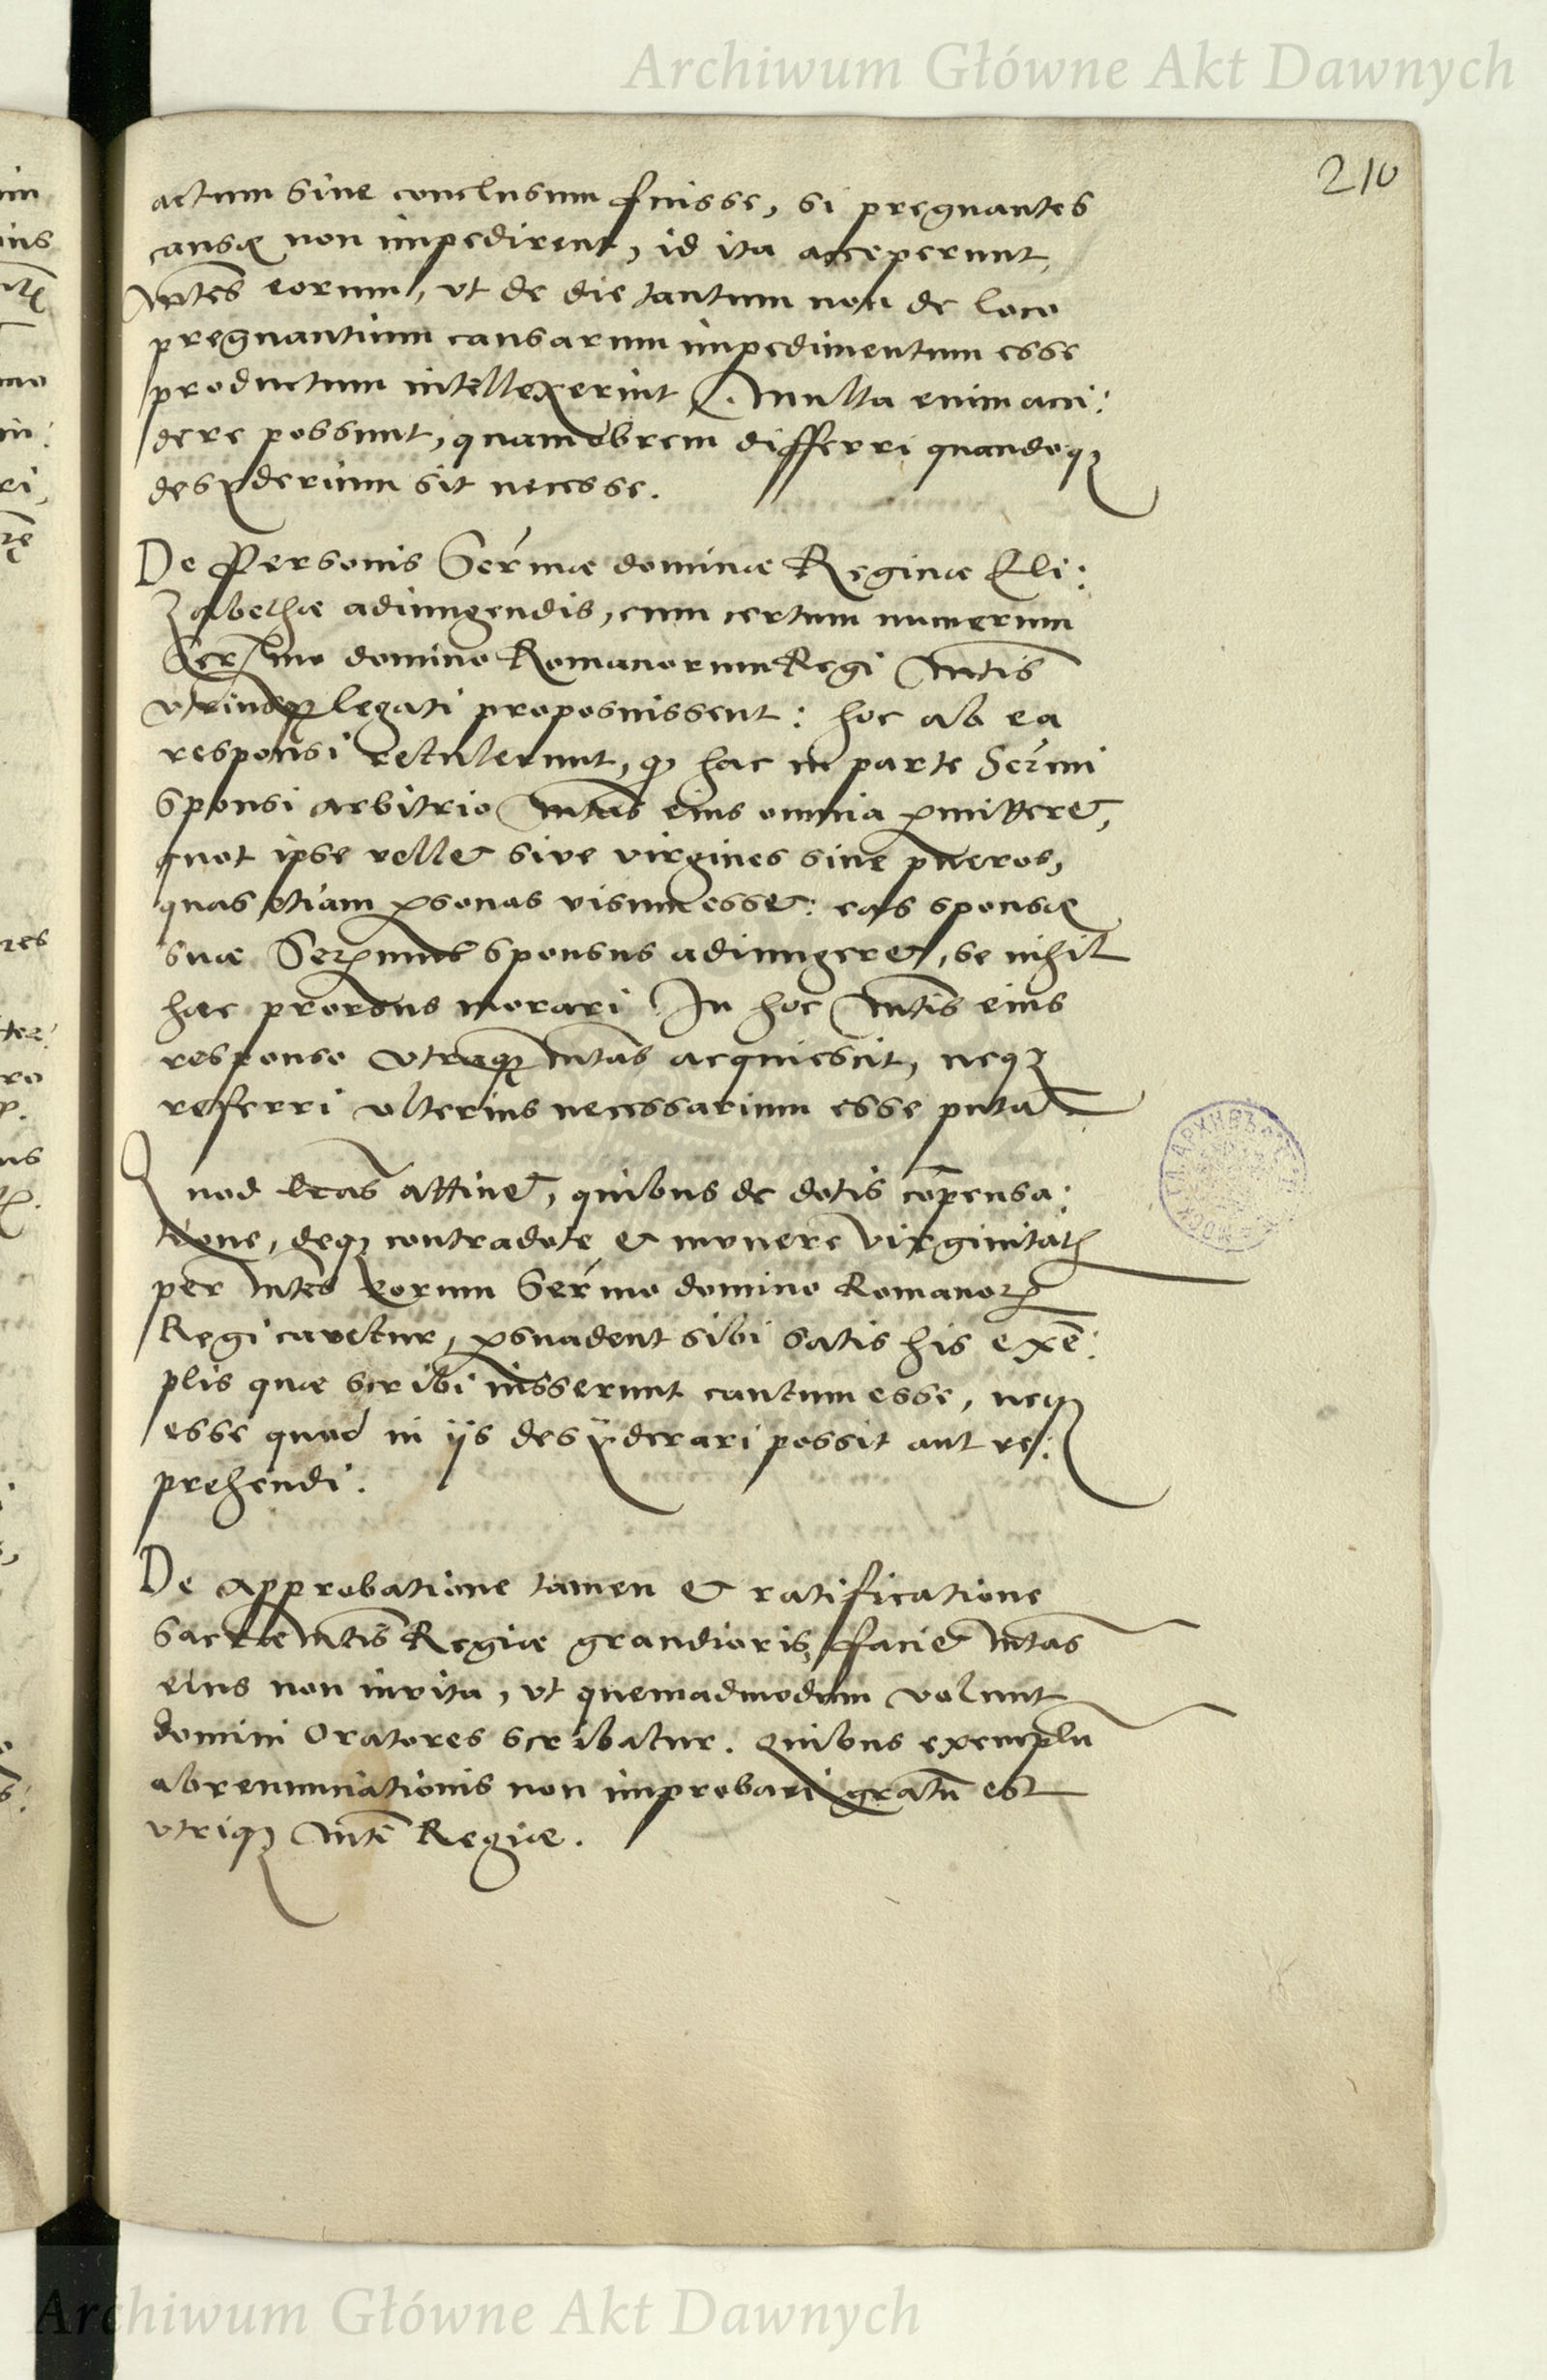 Archiwum Główne Akt Dawnych
210
actum sive conclusum fuisse, si pregnantes
causę non impedirent, id ita acceperunt
Mtes eorum, ut de die tantum non de loco
pregnantium causarum impedimentum esse
productum intellexerint. Multa enim acci:
dere possunt, quamobrem differri quandoq;
desyderium sit necesse.
De Personis Sermae dominae Reginae Eli:
zabethae adiungendis, cum certum numerum
Sermo domino Romanorum Regi Mtis
utriusq; legati proposuissent: hoc ab ea
responsi retulerunt, q hac in parte Sermi
Sponsi arbitrio Mtas eius omnia pmitteret,
quot ipse vellet sive virgines sive pueros,
quas etiam psonas visum esset: eas sponsę
suae Sermus sponsus adiungeret, se nihil
hac prorsus morari. In hoc Mtis eius
responso utraq; Mtas acquiescit, neq;
referri ulterius necessarium esse putat
Quod lras attinet, quibus de dotis cõpensa:
tione, deq; contradote et munere virginitatis
per Mtes eorum Sermo domino Romanor
Regi cavetur, psuadent sibi satis his exẽ:
plis quae scribi iusserunt cautum esse, neq;
esse quod in ijs desyderari possit aut re:
prehendi.
De approbatione tamen et ratificatione
Sacrae Mtis Regiae grandioris, faciet Mtas
eius non invita, ut quemadmodum volunt
domini Oratores scribatur. Quibus exemplũ
abrenunciationis non improbari gratũ est
utriq; Mti Regiae.
Archiwum Główne Akt Dawnych